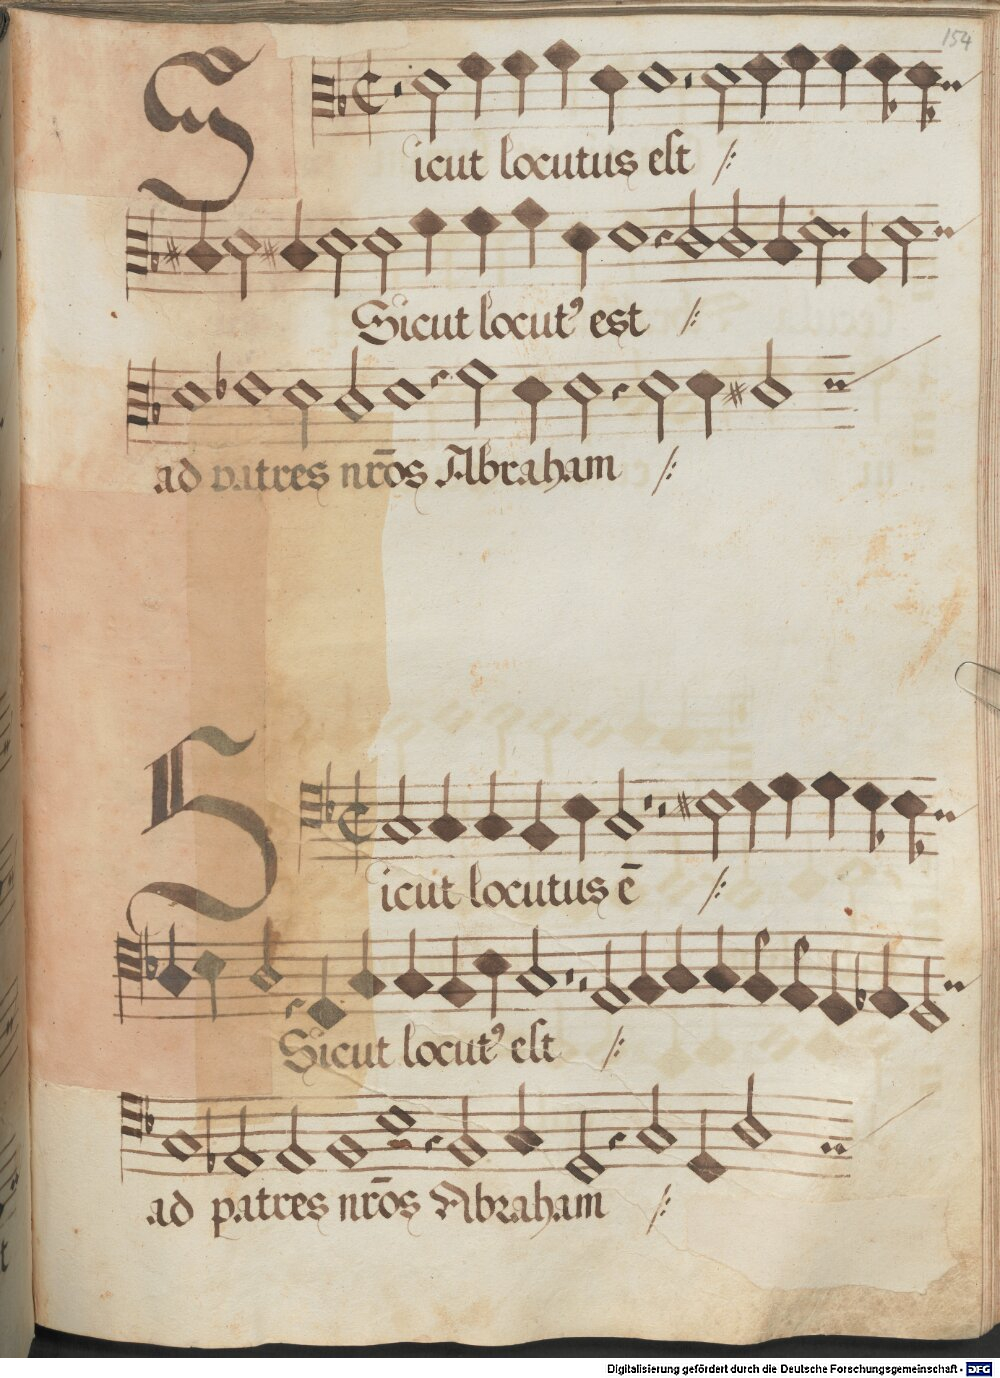 154
Sicut locutus est /:
Sicut locutꝰ est /:
ad patres nr̄os Abraham /:
Sicut locutus ē /:
Sicut locutꝰ est /:
ad patres nr̄os Abraham /:
Digitalisierung gefördert durch die Deutsche Forschungsgemeinschaft - DFG